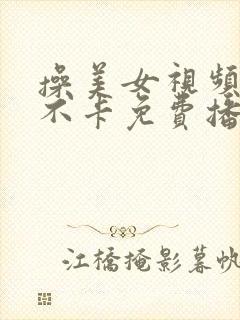 操美女視頻
不卡免費播
江橋掩影暮帆